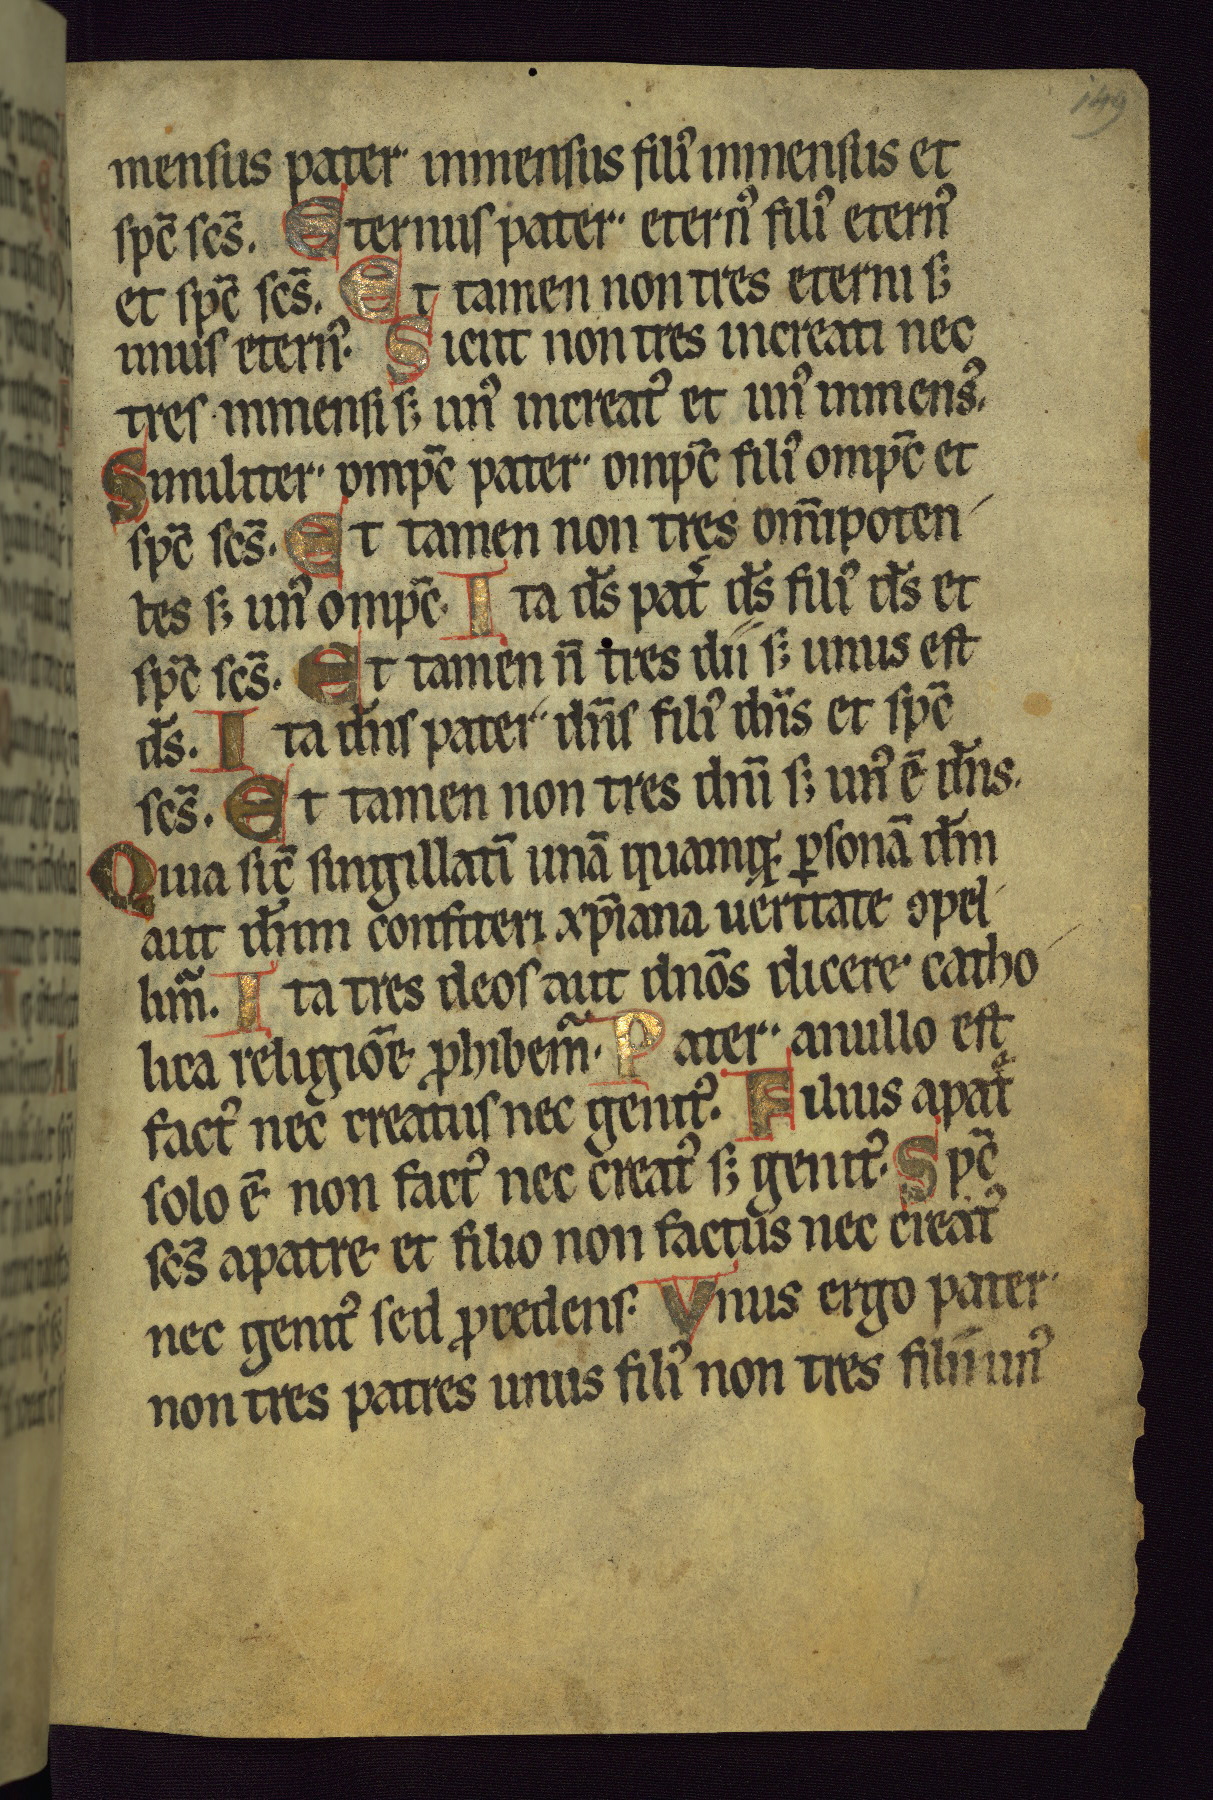 149
mensus pater· inmensus filiꝰ inmensus et
sp̄c sc̄s. Eternus pater· eternꝰ filiꝰ eternꝰ
et sp̄c sc̄s. Et tamen non tres eterni sꝫ
unus eternꝰ. Sicut non tres increati nec
tres inmensi sꝫ unꝰ increatꝰ et unꝰ inmensꝰ.
Similiter· omp̄c pater· omp̄c filiꝰ omp̄c et
sp̄c sc̄s. Et tamen non tres om̄ipoten
tes sꝫ unꝰ omp̄c. Ita d̄s pat̉ d̄s filiꝰ d̄s et
sp̄c sc̄s. Et tamen n̄ tres dii sꝫ unus est
d̄s. Ita dn̄s pater· dn̄s filiꝰ dn̄s et sp̄c
sc̄s. Et tamen non tres dn̄i sꝫ unꝰ ē dn̄s.
Quia sic̄ singillatī unā quamqꝫ ꝑsonā d̄m
aut dn̄m confiteri xp̄iana ueritate ꝯpel
lim̄. Ita tres deos aut dn̄os dicere· catho
lica religiōe ꝓhibem̄. Pater· anullo est
factꝰ nec creatus nec genitꝰ. Filius apat̉
solo ē non factꝰ nec creatꝰ sꝫ genitꝰ. Sp̄c
sc̄s apatre· et filio non factus nec creatꝰ
nec genitꝰ sed ꝓcedens. Vnus ergo pater·
non tres patres unus filiꝰ non tres filii unꝰ